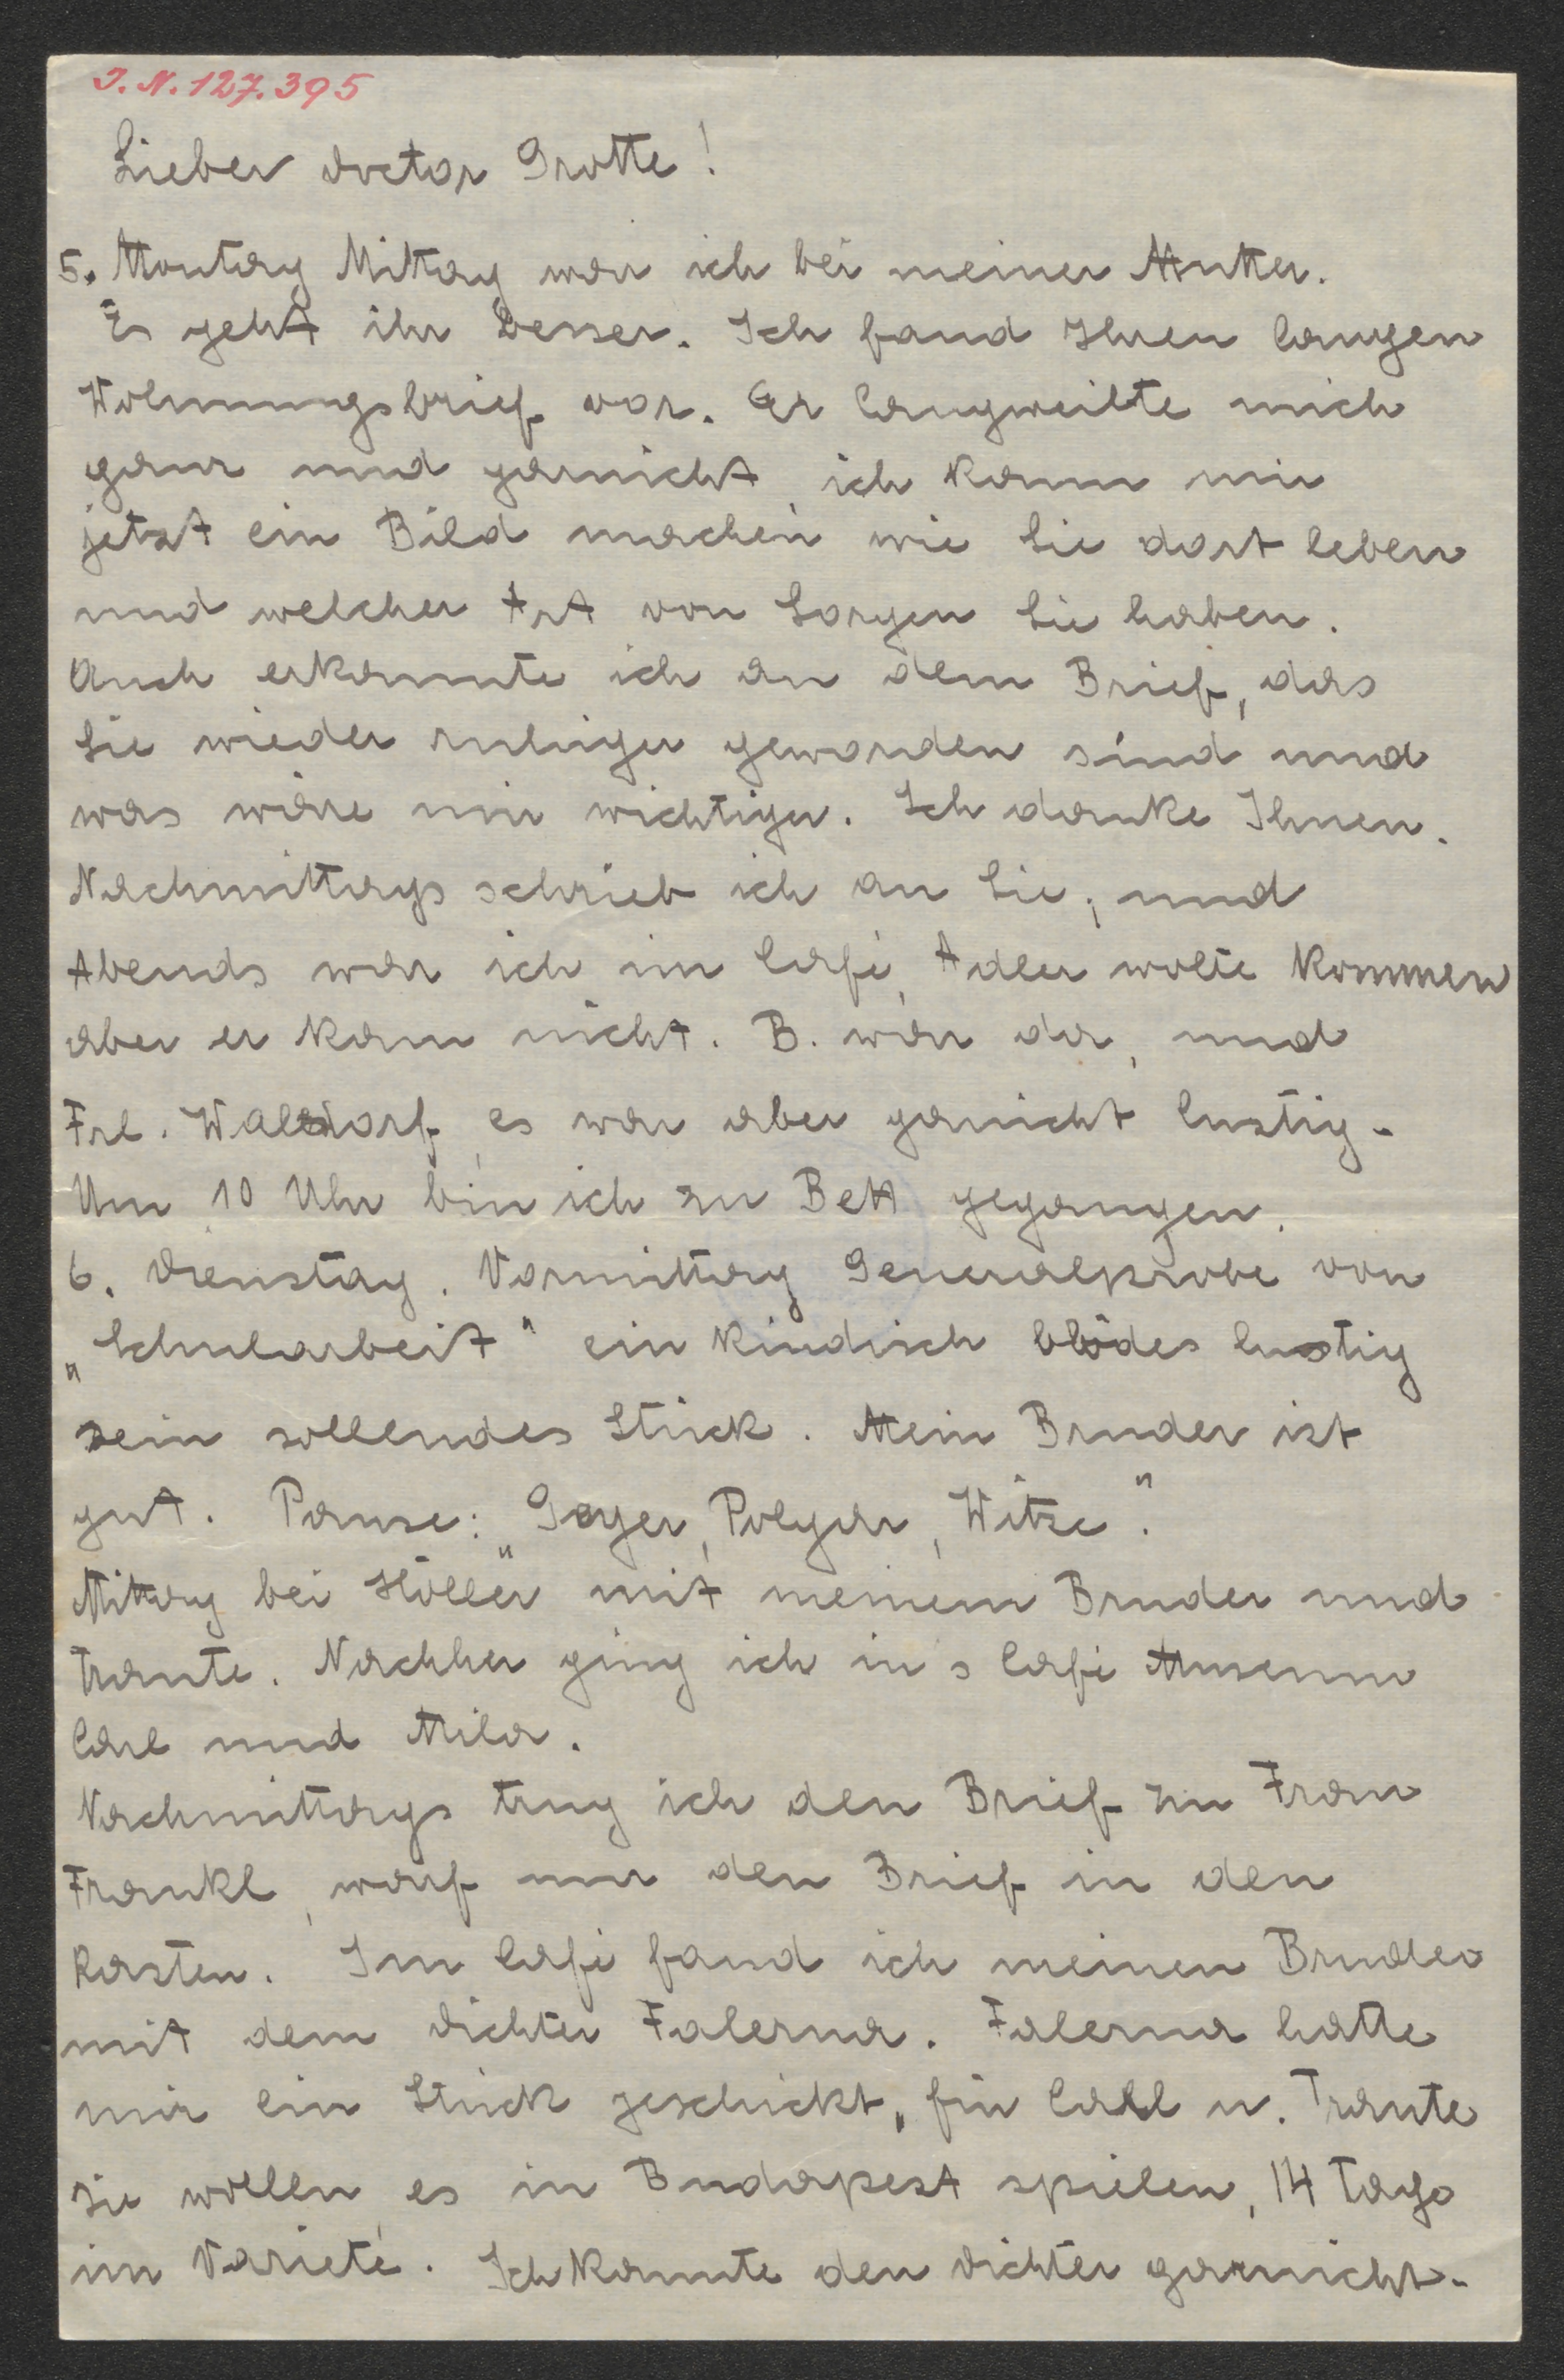 I.N.127.395
Lieber Doctor Grotte!
5. Montag Mittag war ich bei meiner Mutter.
Es geht ihr besser. Ich fand Ihren langen
Wohnungsbrief vor. Er langweilte mich
ganz und garnicht, ich kann mir
jetzt ein Bild machen wie Sie dort leben
und welcher Art von Sorgen Sie haben.
Auch erkannte ich an dem Brief, das
Sie wieder ruhiger geworden sind und
was wäre mir wichtiger. Ich danke Ihnen.
Nachmittags schrieb ich an Sie, und
Abends war ich im Cafe, Adler wolte kommen
aber er kam nicht. B. war da, und
Frl. Waldorf, es war aber garnicht lustig.
Um 10 Uhr bin ich zu Bett gegangen.
6. Dienstag. Vormittag Generalprobe von
„Schularbeit" ein kindisch blödes lustig
sein sollendes Stück. Mein Bruder ist
gut. Pause: „Geyer, Polgar, Witze".
Mittag bei Höller mit meinem Bruder und
Traute. Nachher ging ich in's Cafe Museum
Carl und Mila.
Nachmittags trug ich den Brief zu Frau
Frankl, warf nur den Brief in den
Kasten. Im Cafe fand ich meinen Bruder
mit dem Dichter Falerna. Falerna hatte
mir ein Stück geschickt, für Carl u. Traute
sie wollen es in Budapest spielen, 14 Tage
im Varieté. Ich kannte den Dichter garnicht.